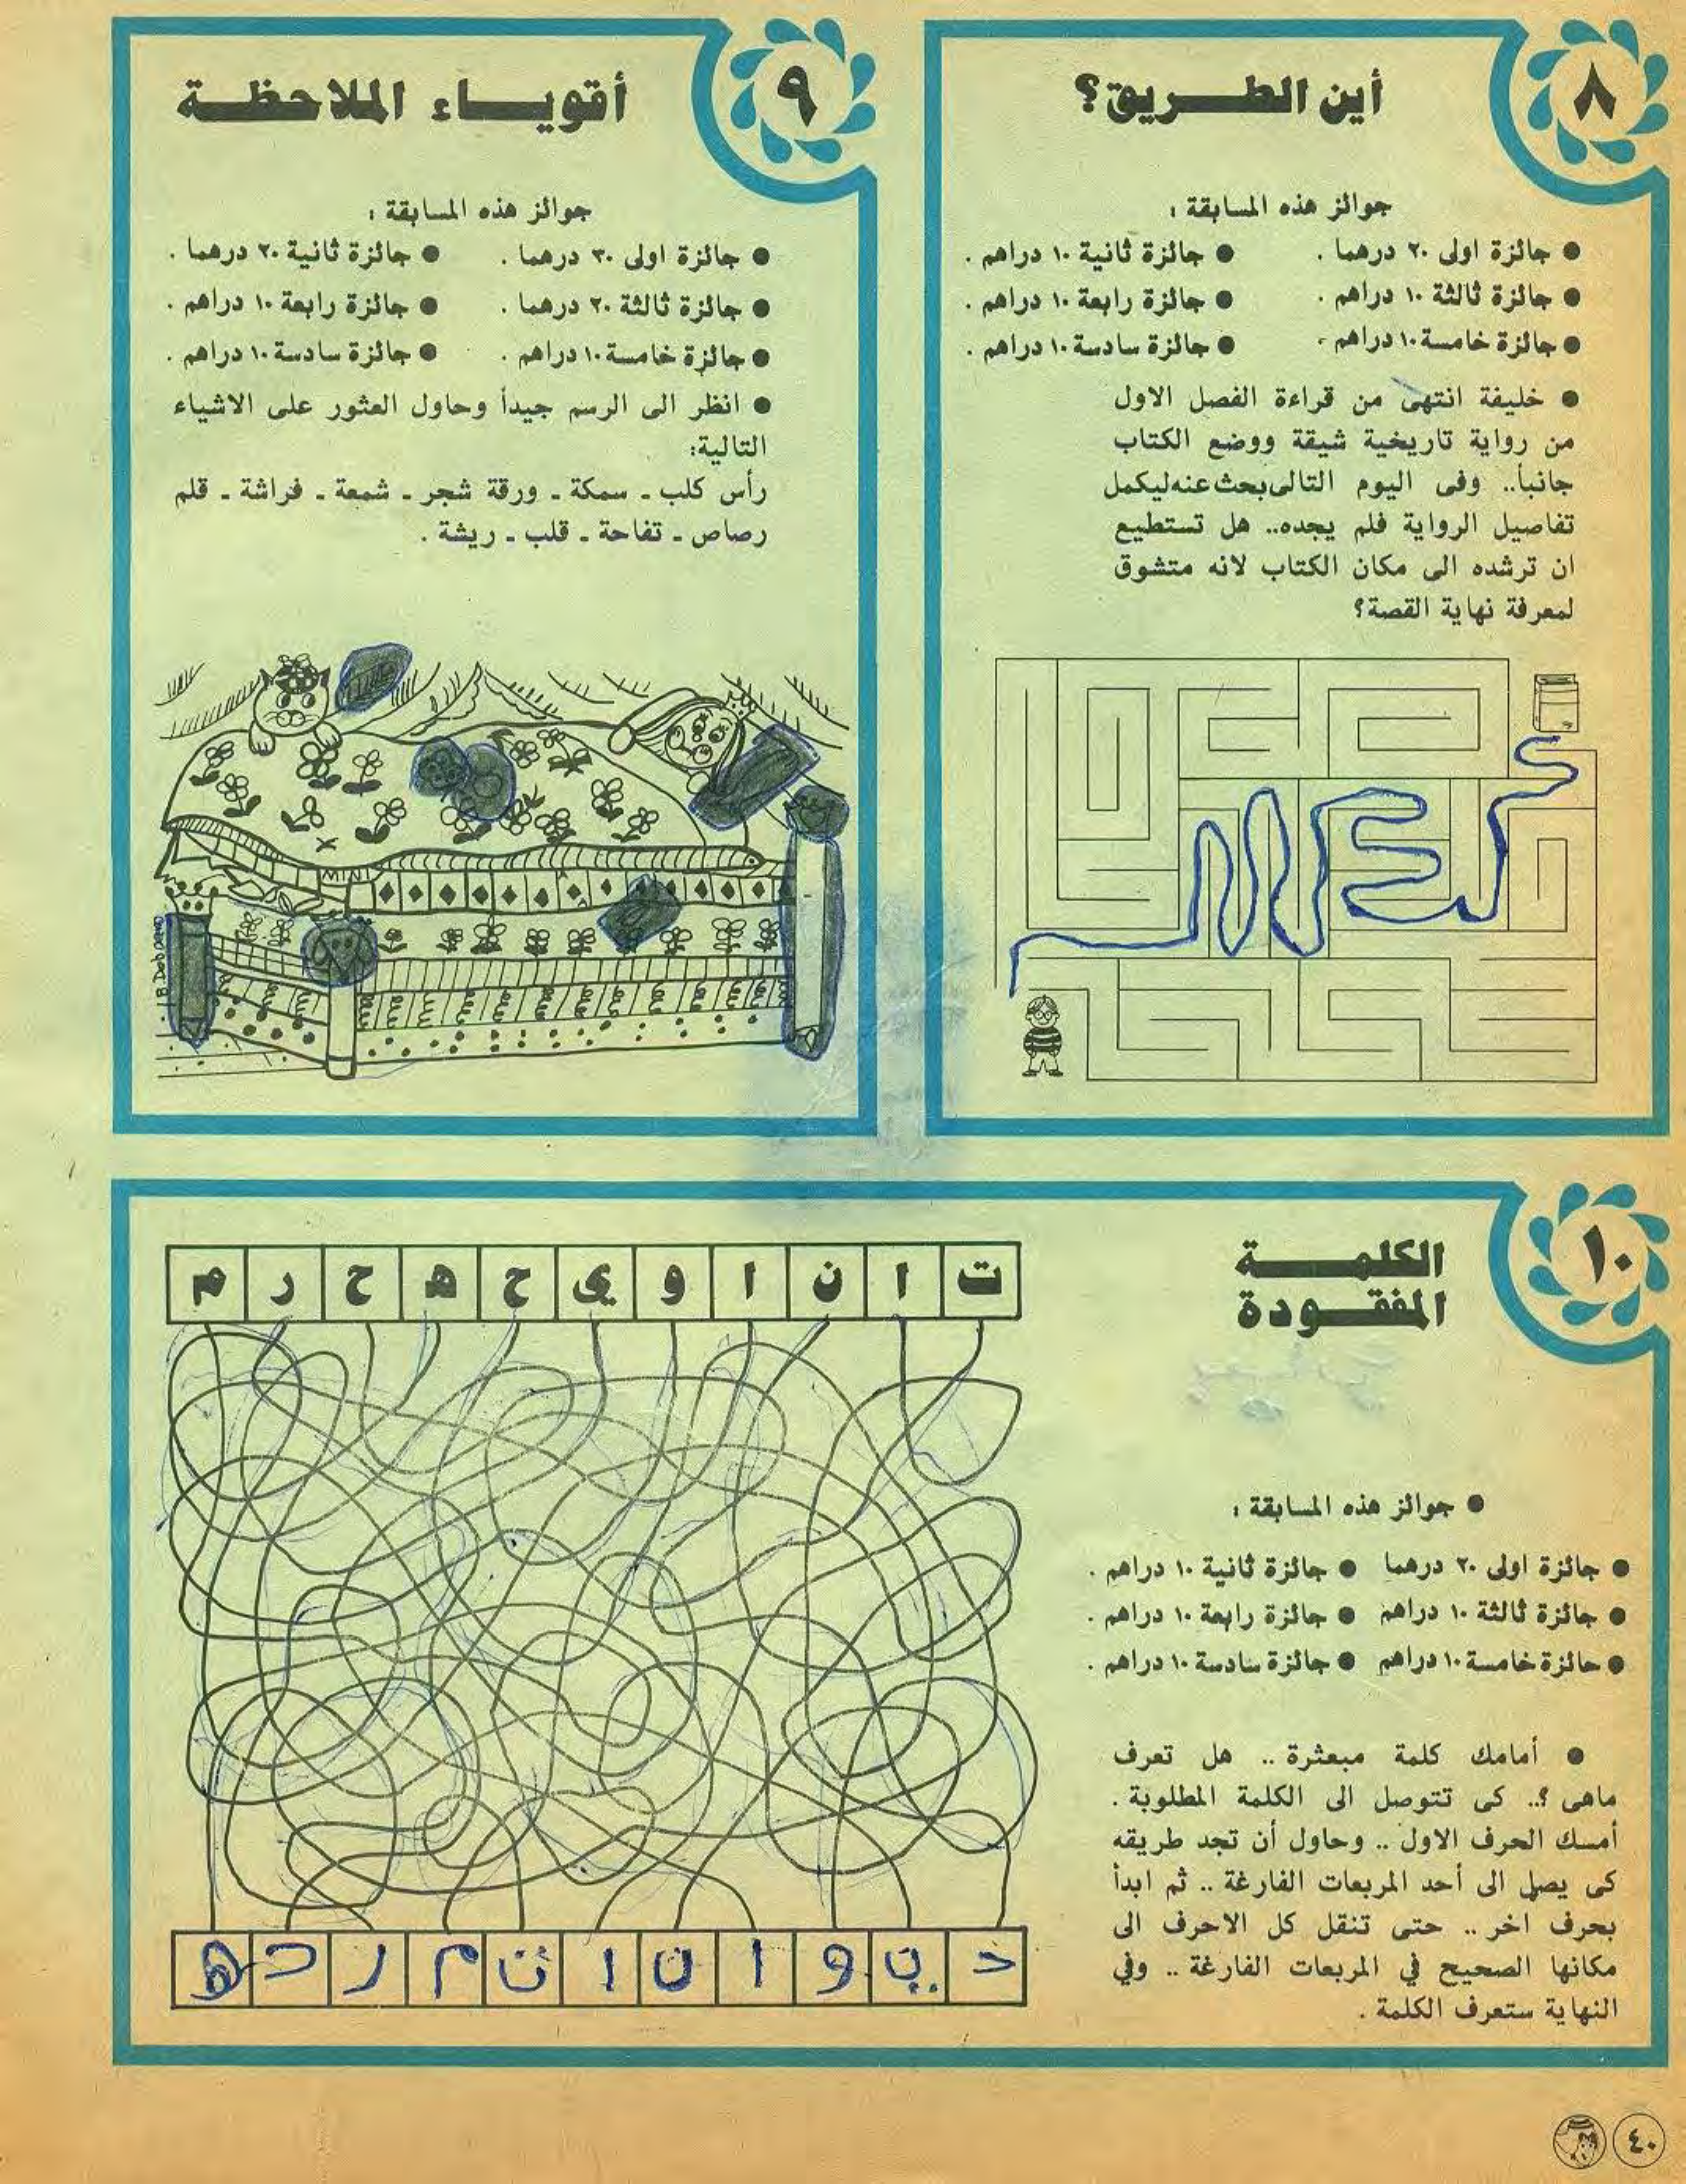 ٨
أين الطريق؟
جوائز هذه المسابقة :
● جائزة اولى ٢٠ درهما .
● جائزة ثانية ١٠ دراهم .
● جائزة ثالثة ١٠ دراهم .
● جائزة رابعة ١٠ دراهم .
● جائزة خامسة ١٠ دراهم .
● جائزة سادسة ١٠ دراهم .
● خليفة انتهى من قراءة الفصل الاول
من رواية تاريخية شيقة ووضع الكتاب
جانباً.. وفى اليوم التالى بحث عنه ليكمل
تفاصيل الرواية فلم يجده.. هل تستطيع
ان ترشده الى مكان الكتاب لانه متشوق
لمعرفة نهاية القصة؟
٩
أقوياء الملاحظة
جوائز هذه المسابقة :
● جائزة اولى ٣٠ درهما .
● جائزة ثانية ٢٠ درهما .
● جائزة ثالثة ٢٠ درهما .
● جائزة رابعة ١٠ دراهم .
● جائزة خامسة ١٠ دراهم .
● جائزة سادسة ١٠ دراهم .
● انظر الى الرسم جيداً وحاول العثور على الاشياء
التالية:
رأس كلب - سمكة - ورقة شجر - شمعة - فراشة - قلم
رصاص - تفاحة - قلب - ريشة .
MINI
١٠
الكلمة
المفقودة
● جوائز هذه المسابقة :
● جائزة اولى ٢٠ درهما ● جائزة ثانية ١٠ دراهم .
● جائزة ثالثة ١٠ دراهم ● جائزة رابعة ١٠ دراهم .
● جائزة خامسة ١٠ دراهم ● جائزة سادسة ١٠ دراهم .
● أمامك كلمة مبعثرة .. هل تعرف
ماهى ؟.. كى تتوصل الى الكلمة المطلوبة .
أمسك الحرف الاول .. وحاول أن تجد طريقه
كى يصل الى أحد المربعات الفارغة .. ثم ابدأ
بحرف اخر .. حتى تنقل كل الاحرف الى
مكانها الصحيح في المربعات الفارغة .. وفي
النهاية ستعرف الكلمة .
ت ا ن ا و ي ح هـ ح ر م
ح ي و ا ن ا ت م ر ح هـ
٤٠